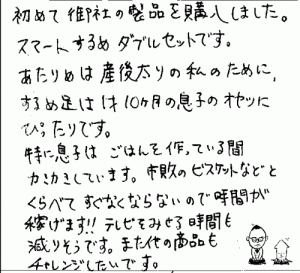 初めて御社の製品を購入しました。
スマートするめダブルセットです。
あたりめは産後太りの私のために、
するめ足は1才10ヶ月の息子のオヤツに
ぴったりです。
特に息子はごはんを作っている間
カミカミしています。市販のビスケットなどと
くらべてすぐなくならないので時間が
稼げます!!テレビをみせる時間も
減りそうです。また他の商品も
チャレンジしたいです。